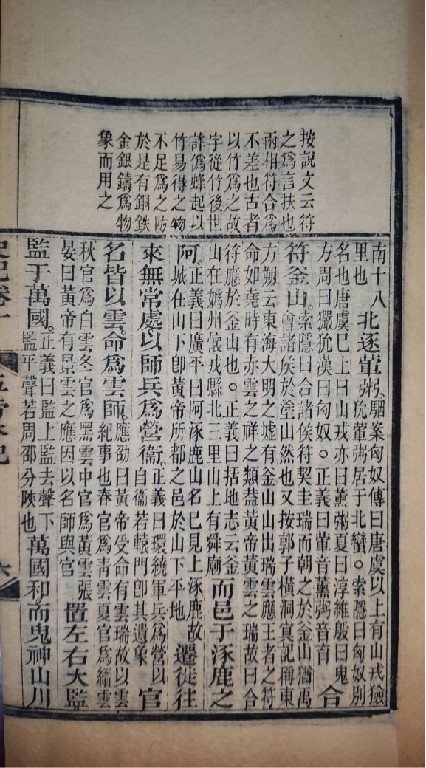 按說文云符
之爲言扶也
兩相符合爲
不差也古者
以竹爲之故
字從竹後世
詐僞蜂起以
竹易得之物
不足爲之防
於是有銅鉄
金銀鑄爲物
象而用之
南十八里也北逐葷粥駰案匈奴傳曰唐虞以上有山戎獫狁葷粥居于北蠻。索隱曰匈奴別
名也唐虞已上曰山戎亦曰薰粥夏曰淳維殷曰鬼方周曰玁狁漢曰匈奴。正義曰葷音薰粥音育合
符釜山。索隱曰合諸侯符契圭瑞而朝之於釜山猶禹會諸侯於塗山然也又按郭子橫洞冥記稱東
方朔云東海大明之墟有釜山山出瑞雲應王者之符命如堯時有赤雲之祥之類蓋黃帝黃雲之瑞故曰合
符應於釜山也。正義曰括地志云釜山在嬀州懷戎縣北三里山上有舜廟而邑于涿鹿之
阿。正義曰廣平曰阿涿鹿山名已見上涿鹿故城在山下卽黃帝所都之邑於山下平地遷徙往
來無常處以師兵爲營衞。正義曰環繞軍兵爲營以自衞若轅門卽其遺象官
名皆以雲命爲雲師應劭曰黃帝受命有雲瑞故以雲紀事也春官爲青雲夏官爲縉雲
秋官爲白雲冬官爲黑雲中官爲黃雲張晏曰黃帝有景雲之應因以名師與官置左右大監
監于萬國。正義曰監上監去聲下監平聲若周邵分陝也萬國和而鬼神山川
史記卷一 五帝本紀 六